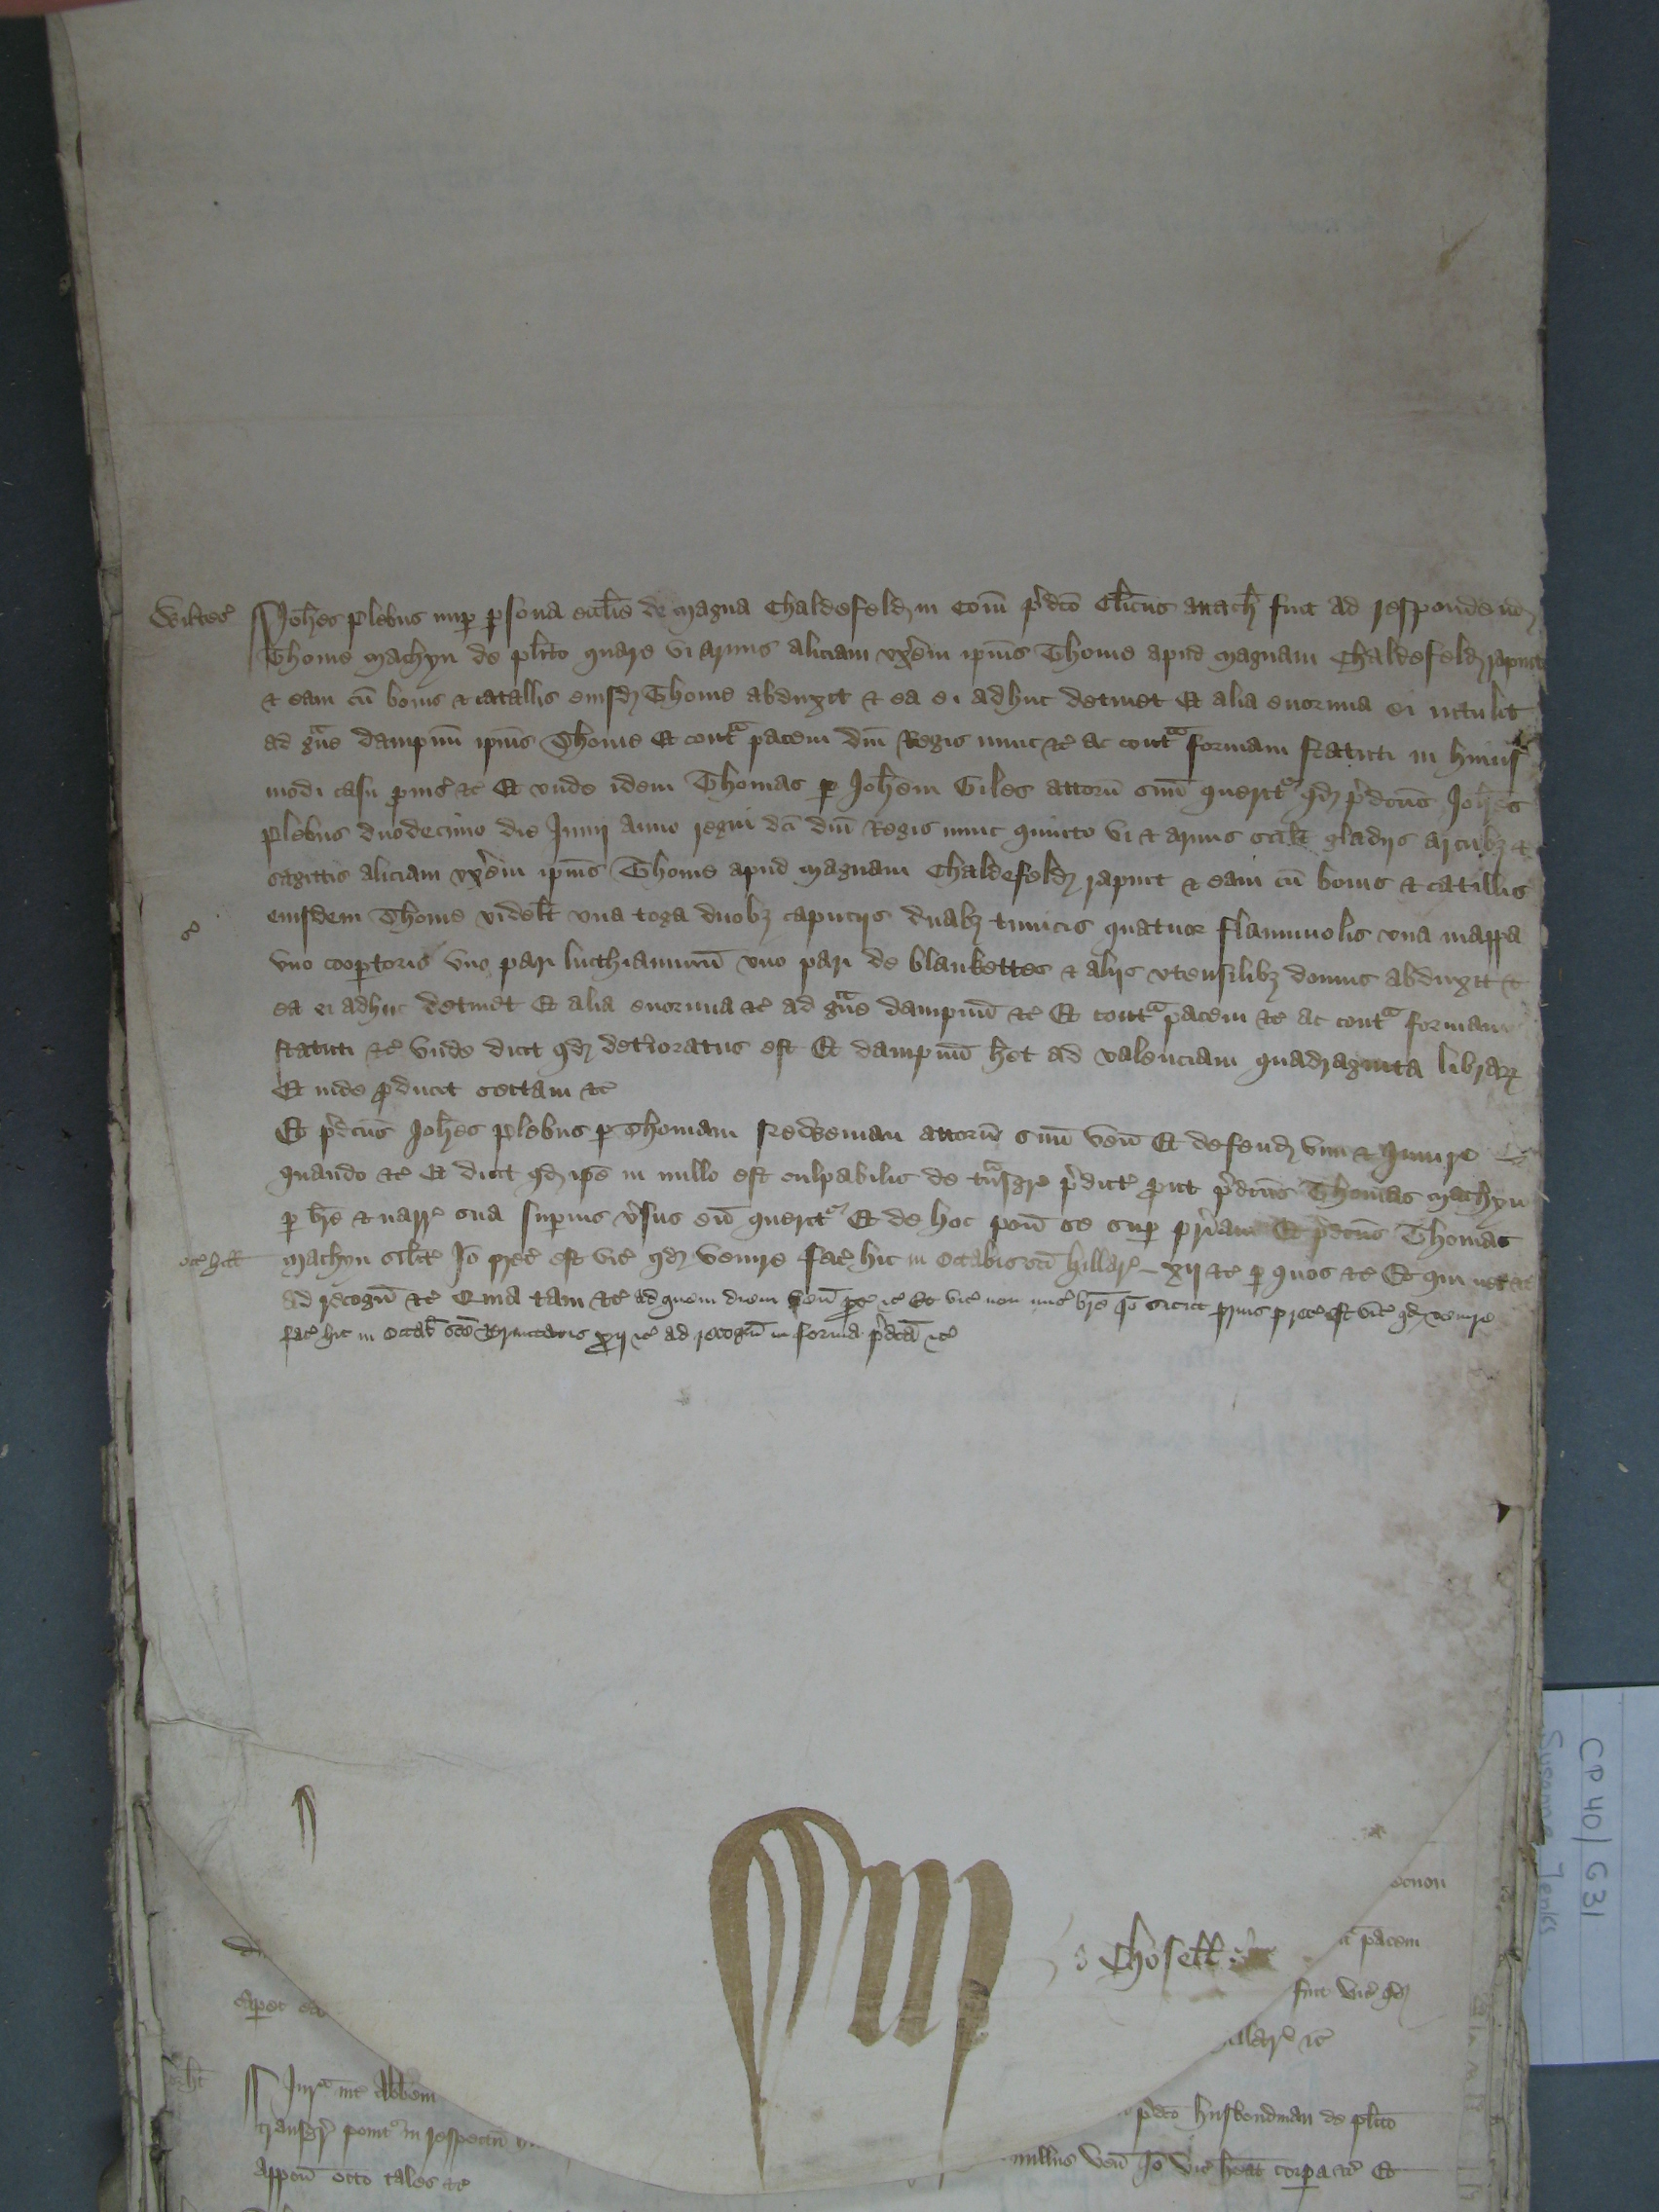 Wiltes̉ Joh̄es Plebus nup̱ p̱sona eccl̄ie de magna Chaldefeld in Com̄ p̄dc̄o Cl̄icus attach̄ fuit ad respondend
Thome Machyn de pl̄ito quare vi armis Aliciam vx̄em ip̄ius Thome apud magnam Chaldefeld rapuit
& eam cū bonis & catallis eiusd Thome abduxit & ea ei adhuc detinet Et alia enormia ei intulit
ad g̃ue dampnū ip̄ius Thome Et contᵃ pacem dn̄i Regis nunc &c̄ ac contᵃ formam statuti in huius
modi casu p̱uis̉ &c̄ Et unde idem Thomas p̱ Joh̄em Giles attorn̄ suū querit͛ qd p̄dcūs Joh̄es
Plebus duodecimo die Junij anno regni dc̄i dn̄i Regis nunc quinto vi & armis scil̄t gladijs arcubȝ &
sagittis Aliciam vx̄em ip̄ius Thome apud magnam Chaldefeld rapuit & eam cū bonis & catallis
eiusdem Thome videl̄t una toga duobȝ capucijs duabȝ tunicis quatuor flammolis una mappa
uno coop̱torio uno pari lucthiaminū uno pari de blankettes & alijs utensilibȝ domus abduxit &
ea ei adhuc detinet Et alia enormia &c̄ ad g̃ue dampnū &c̄ Et contᵃ pacem &c̄ ac contᵃ formam
statuti &c̄ unde dicit qd det̉ioratus est Et dampnū h̄et ad valenciam quadraginta librarꝝ
Et inde p̱ducit sectam &c̄
Et p̄dcūs Joh̄es Plebus p̱ Thomam Redeman attorn̄ suū ven̄ Et defend vim & Iniur̉
quando &c̄ Et dicit qd ip̄e in nullo est culpabilis de tᵃnsgr̉ p̄dict̉ p̱ut p̄dcūs Thomas Machyn
p̱ br̄e & narr̉ sua sup̱ius v̉sus eū querit͛ Et de hoc pon̄ se sup̱ pr̄iam Et p̄dcūs Thomas
oct̉ hill̄ Machyn sil̄it̉ Jō prec̉ est vic̉ qd venire fac̉ hic in Octabis sc̄i Hillar̉ xij &c̄ p̱ quos &c̄ Et qui nec &c̄
ad recogn̄ &c̄ Quia tam &c̄ ad quem diem ven̄ p̱t̉ &c̄ Et vic̉ non mis̉ br̄e Jō sicut prius prec̉ est vic̉ qd venire
fac̉ hic in Octab̄ sc̄e Trinitatis xij &c̄ ad recogn̄ in forma p̄dcā &c̄
Chosell
ecnon
pacem
fuit vic̉ qd
&c̄
Jurᵃ int̉ Abb̄em
p̄dc̄o husbondman de pl̄ito
transgr̉ ponit͛ in respectū
nullus ven̄ Jō vic̉ h̄eat corp̱a &c̄ Et
appon̄ octo tales &c̄
CP 40/631
Susanne Jenks